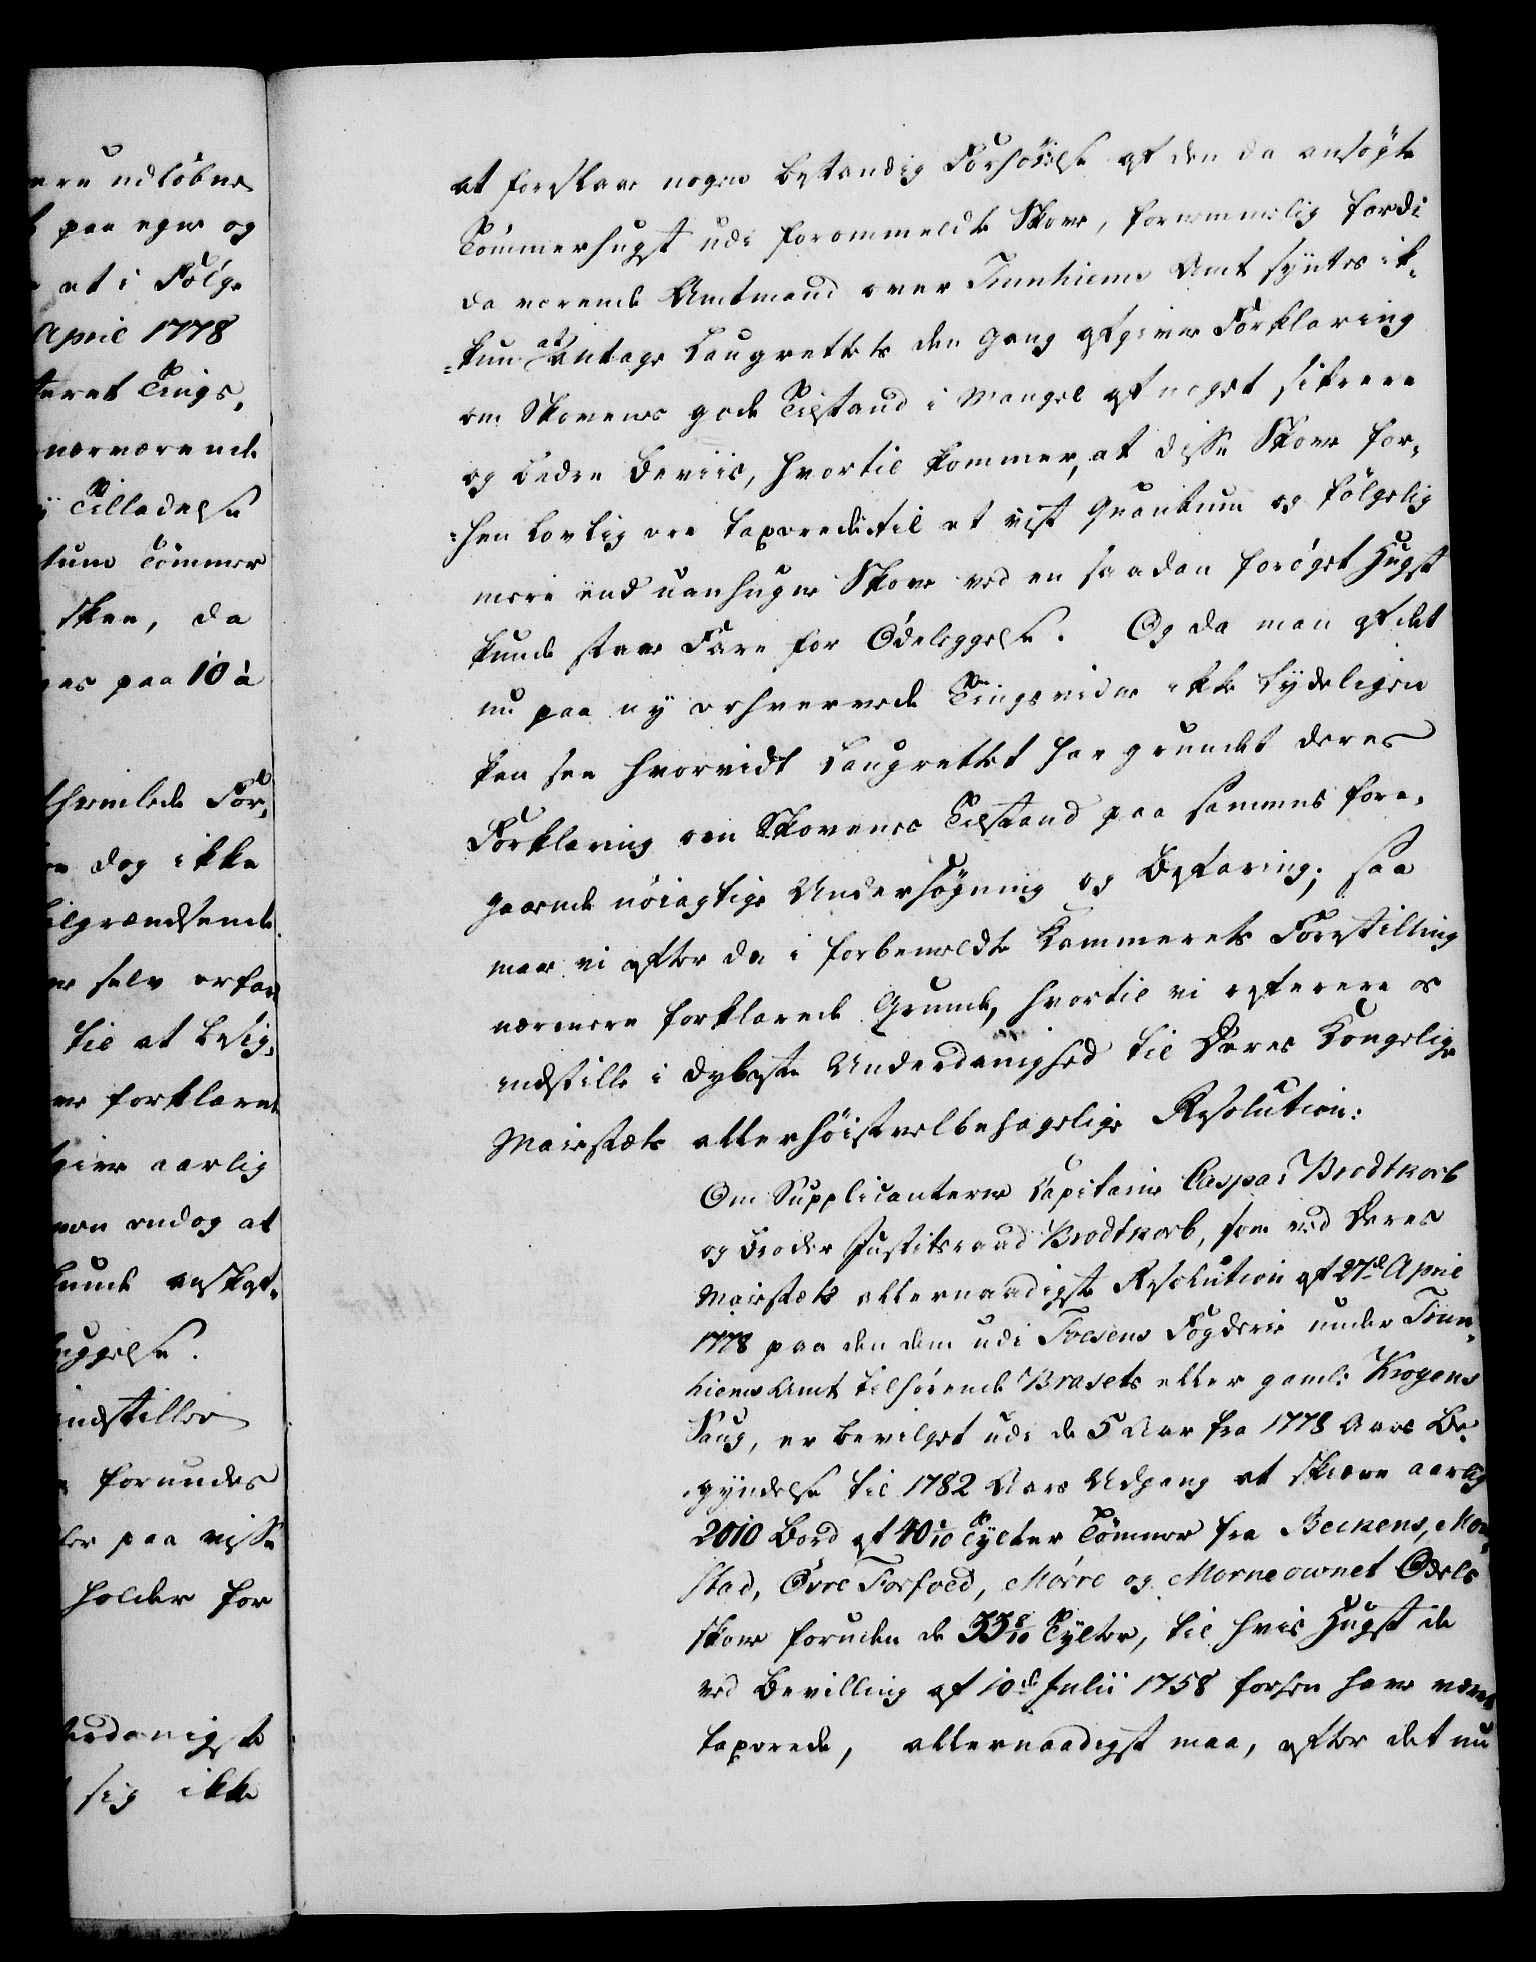 ere udløbne
paa egne og
at i Følge
April 1778
teret Tings,
nærværende
Tilladelse
tum Tømmer
skee, da
ges paa 10 à
hvmlede For,
dog ikke
tilgrændsende
selv erfare
til at besig,
forklaret
giere aarlig
endog at
kunde anskaf,
eggelse.
indstiller
forundes
paa visse
holder for
underdanigste
sig ikke
at foreslaae nogen bestandig Forhøielse af den da ansøgte
Tømmerhugst udi forommeldte Skove, fornemmelig fordi
da værende Amtmand over Trunhiems Amt syntes ik,
=kun at antage Laugrettets den Gang afgivne Forklaring
om Skovenes gode Tilstand i Mangel af noget sikrere
og bedre Beviis, hvortil kommer, at disse Skove for,
=hen lovlig ere taxerede til et vist Quantum og følgelig
mere end uanhugne Skove ved en saadan forøget Hugst
kunde staae Fare for Ødeleggelse. Og da man af det
nu paa ny erhvervede Tingsvidne ikke tydeligen
kan see hvorvidt Laugrettet har grundet deres
Forklaring om Skovenes Tilstand paa sammes fore,
gaaende nøiagtige Undersøgning og Befaring; saa
maae vi efter de i forbemeldte Kammerets Forestilling
nærmere forklarede Grunde, hvortil vi referere os
indstille i dybeste Underdanighed til Deres Kongelige
Maiestæts allerhøistvelbehagelige Resolution:
Om Supplicanterne Capitaine Caspar Brodtkorb
og Broder Justitsraad Brodtkorb, som ved Deres
Maiestæts allernaadigste Resolution af 27de April
1778 paa den dem udi Foesens Fogderie under Trun,
hiems Amt tilhørende Brasets eller gaml: Krogens
Saug, er bevilget udi de 5 Aar fra 1778 Aars Be,
gyndelse til 1782 Aars Udgang at skiære aarlig
2010 Bord af 40 2/10 Tylter Tømmer fra Beckens, Mo,
stad, Øvre Forfoed, Mørre og Morneownet Odels
skove foruden de 33 8/10 Tylter, til hvis Hugst de
ved Bevilling af 10de Julii 1758 forhen have været
taxerede, allernaadigst maa, efter det nu